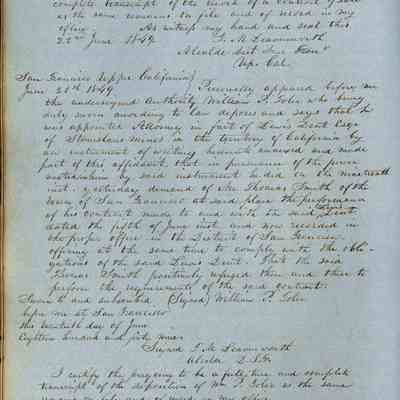 complete transcript of the record of a contract of sale
as the same remains on file and of record in my
office. As witness my hand and seal this
22nd June 1849. T. M. Leavenworth
Alcalde Dist San Franco
Up. Cal.
San Francisco Upper California
June 20th 1849. Personally appeared before me
the undersigned Authority William P. who being
duly sworn according to law deposes and says that he
was appointed Attorney in fact of Lewis Dent Esqr
of Stanislaus mines in the territory of California by
an instrument of writing herewith annexed and made
part of this affidavit, that in pursuance of the power
by said instrument he did on the nineteenth
inst. yesterday demand of Mr. Thomas Smith of the
town of San Francisco at said place the performance
of his contract made to and with the said Lewis Dent
dated the fifth of June inst. and now recorded in
the proper office in the District of San Francisco,
offering at the same time to comply with the obli-
gations of the said Lewis Dent. That the said
Thomas Smith positively refused then and there to
perform the requirements of the said contract.
Sworn to and subscribed (Signed) William P.
before me at San Francisco
this twentieth day of June
Eighteen hundred and forty nine.
Signed T. M. Leavenworth
Alcalde D.S.F.
I certify the foregoing to be a full, true and complete
transcript of the deposition of Wm P. as the same
remains on file and of record in my office